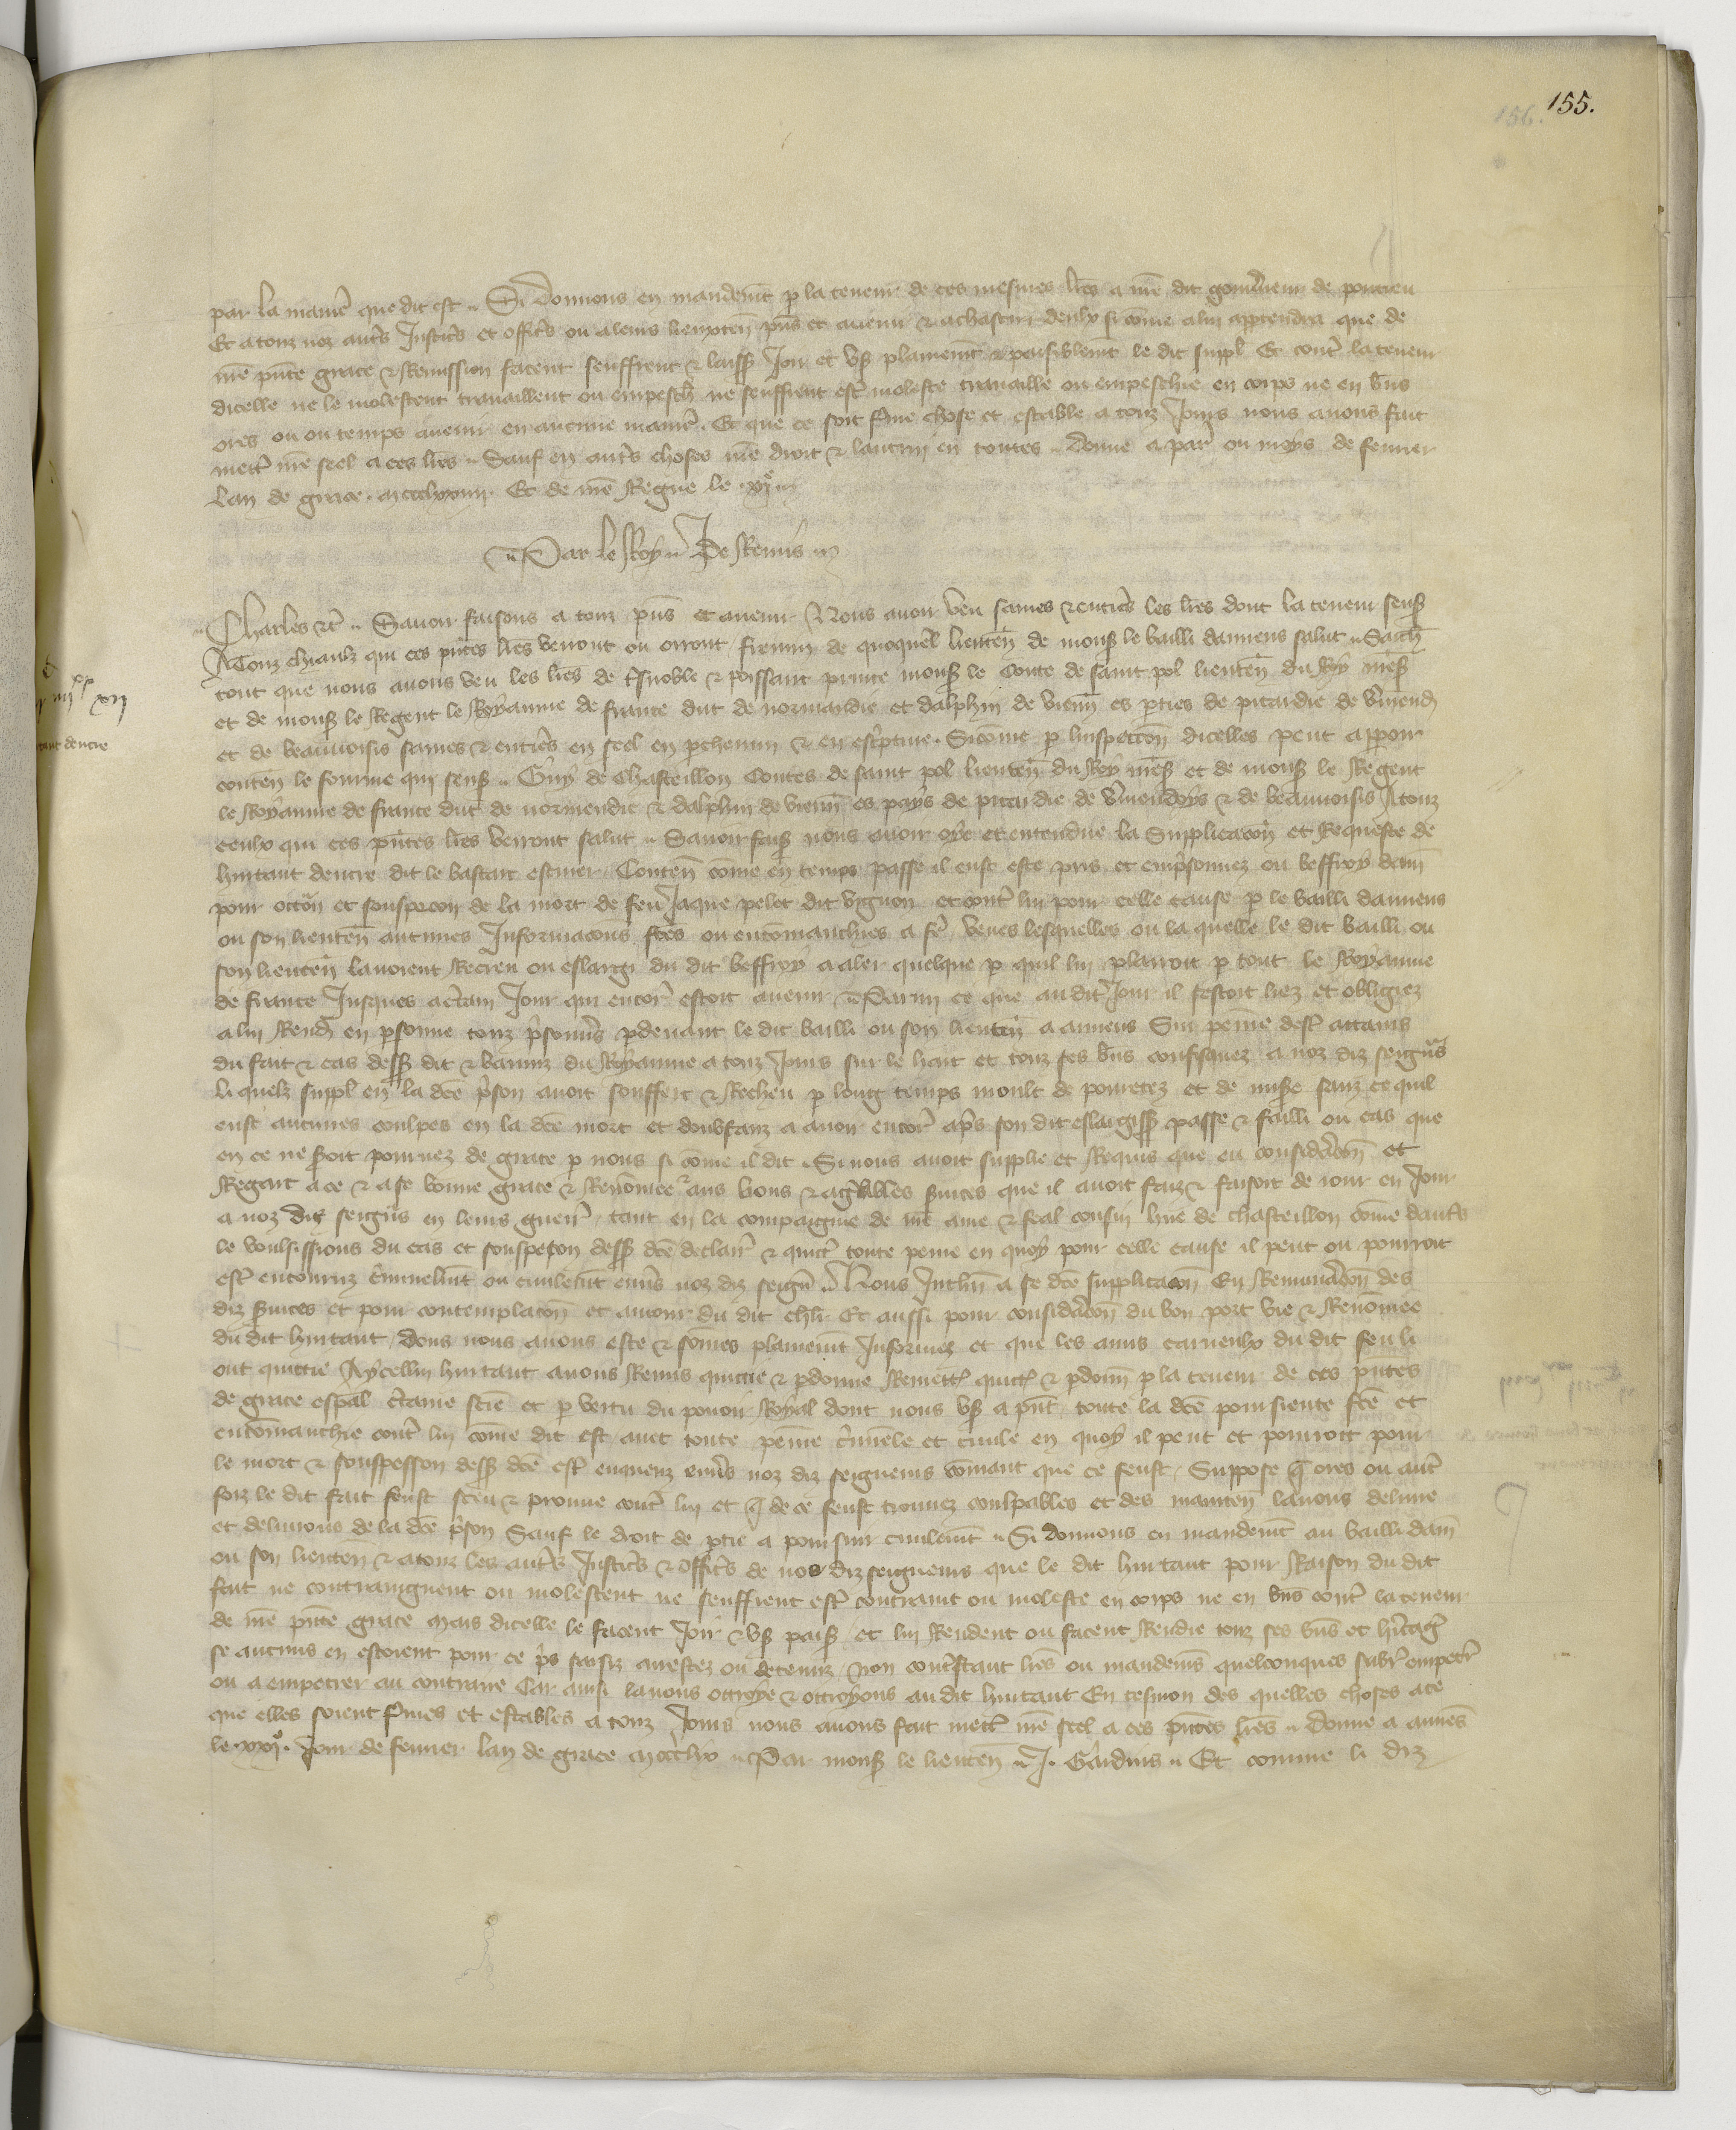 155.
156.
par la manie͛ que dit est .. Si donnons en mandemt̄ p̱ la teneur de ces mesmes lr̄es a nr̄e dit gouu͛neur de pontieu
Et a touz noz aut͛s Justic͛s et offic͛s ou a leurs lieuxten̄ pn̄s et auenir & a chascun deulx si cōme a lui app̱tendra que de
nr̄e pn̄te grace & Remission facent seuffrent & laiss̄ Joir et vs̄ plainemt̄ & paisiblemt̄ le dit suppl̄ Et cont͛ la teneur
dicelle ne le molestent trauaillent ou empesch̄ ne seuffrent est͛ moleste trauaillie ou empeschie en corps ne en bn̄s
ores ou ou temps auenir en aucune manie͛. Et que ce soit f͛me chose et estable a touz Jours nous auons fait
mett͛ nr̄e seel a ces lr̄es .. Sauf en aut͛s choses nr̄e droit & lautrui en toutes .. Donne a par͛ ou moys de feurier
Lan de grace . mccclxxiiii. Et de nr̄e Regne le .xjᵒ.
.. Par le Roy .. De Remis ..
.. Charles &c͛ .. Sauoir faisons a touz pn̄s et auenir Nous auoir veu saines & entie͛s les lr̄es dont la teneur sens̄
A Touz chiaulx qui ces pn̄tes lr̄es verront ou orront, fremin de quoquel̄ lieuten̄ de mons̄ le bailli damiens salut .. Sach̄
tout que nous auons veu les lr̄es de t͛snoble & poissant prince mons̄ le Conte de saint pol lieuten̄ du Roy nr̄es̄
et de mons̄ le Regent le Royaume de france duc de normandie et dalphin de vienn̄ es p̱ties de picardie de v͛mend̄
et de beauuoisis saines & entie͛s en seel en p̱chemin & en esc͛pture. Sicōme p̱ linspeccōn dicelles peut apparoir
conten̄ le fourme qui sens̄ .. Guy de Chasteillon Contes de saint pol lieuten̄ du Roy nr̄es̄ et de mons̄ le Regent
le Royaume de france duc de normendie & dalphin de vienn̄ es pays de picardie de v͛mendoys & de beauuoisis A touz
ceulx qui ces pn̄tes lr̄es verront salut .. Sauoir fais̄ nous auoir oye et entendue la Supplicacōn et Requeste de
huitant dencre dit le bastart escuier, Conten̄ cōme en temps passe il eust este pris et emp͛sonnez ou beffroy dam̄
pour occōn et souspecon de la mort de feu Jaque pelet dit vignon et cont͛ lui pour celle cause p̱ le bailli damiens
ou son lieuten̄ aucunes Informacōns fc̄es ou encōmanchies a fe͛, veues lesquelles ou la quelle le dit bailli ou
son lieuten̄ lauoient Recreu ou eslargi du dit beffroy a aler quelque p̱t quil lui plairoit p̱ tout le Royaume
de france Jusques a c͛tain Jour qui encor͛ estoit auenir .. Parmi ce que au dit Jour il sestoit liez et obligiez
a lui Rend̄ en p̱sonne touz p͛sonn͛s p̱deuant le dit bailli ou son lieuten̄ a amiens Sur peine dest͛ attains
du fait & cas dess̄ dit & banniz du Royaume a touz Jours sur le hart et touz ses bn̄s confisquez a noz diz seign͛s
li quelx suppl̄ en la dc̄e p͛son auoit souffert & Recheu p̱ long temps moult de pouretez et de mise͛ sanz ce quil
eust aucunes coulpes en la dc̄e mort et doubtanz a auoir encor͛ ap͛s son dit eslargiss̄ passe & failli ou cas que
en ce ne s͛oit pouruez de grace p̱ nous si cōme il dit. Si nous auoit supplie et Requis que eu considāc͛ōn et
Regart a ce & a se bonne grace & Renōmee aus bons & agreables s͛uices que il auoit faiz & faisoit de iour en Jour
a noz diz seign͛s en leurs guerr̄ tant en la compaignie de nr̄e ame & feal cousin hue de chasteillon cōme daut͛s
le voulsissions du cas et souspeçon dess̄ dc̄e declair͛ & quict͛ toute peine en quoy pour celle cause il peut ou pourroit
est͛ encouruz c͛iminelmt̄ ou ciuilemt̄ enu͛s noz diz seign̄ .. Nous Inclin̄ a se dc̄e supplicacōn En Remun͛acōn des
diz s͛uices et pour contemplacōn et amour du dit chl̄r Et aussi pour consid͛acōn du bon port vie & Renōmee
du dit huitant, Dons nous auons este & sōmes plainemt̄ Informez et que les amis carneulx du dit feu li
ont quittie A ycellui huitant auons Remis quictie & p̱donne Remett͛ quict͛ & p̱donn̄ p̱ la teneur de ces pn̄tes
de grace esp̄al c͛taine scīe et p̱ vertu du pouoir Royal dont nous vs̄ a pn̄t toute la dc̄e poursiente fc̄e et
encōmanchie cont͛ lui cōme dit est auec toute peine c͛iminele et ciuile en quoy il peut et pourroit pour
le mort & souspesson dess̄ dc̄e est͛ enqueuz enu͛s noz diz seigneurs cōmant que ce feust, Suppose q̄ ores ou aut͛
foiz le dit fait feust sceu & prouue cont͛ lui et q̄ de ce feust trouuez coulpables et des mainten̄ lauons deliure
et deliurons de la dc̄e p͛son Sauf le droit de p̱tie a poursuir ciuilemt̄ .. Si donnons en mandemt̄ au bailli dam̄
ou son lieuten̄ & a touz les aut͛s Justic͛s & offic͛s de nos diz seigneurs que le dit huitant pour Raison du dit
fait ne contraingnent ou molestent ne seuffrent est͛ contraint ou moleste en corps ne en bn̄s cont͛ la teneur
de nr̄e pn̄te grace Mais dicelle le facent Joir & vs̄ pais̄ et lui Rendent ou facent Rendre touz ses bn̄s et h͛itag͛
se aucuns en estoient pour ce p͛s saisiz arrestez ou detenuz, Non cont͛stant lr̄es ou mandemēs quelconques subr͛ empetr͛
ou a empetrer au contraire Car ainsi lauons ottroye & ottroyons au dit huitant En tesmon des quelles choses a ce
que elles soient f͛mes et estables a touz Jours nous auons fait mett͛ nr̄e seel a ces pn̄tes lr̄es .. Donne a amiēs
le .xxjᵒ. Jour de feurier lan de grace mccclix .. Par mons̄ le lieuten̄ .. J. Gardins .. Et comme li diz
iiijˣˣ xij
tant dencre